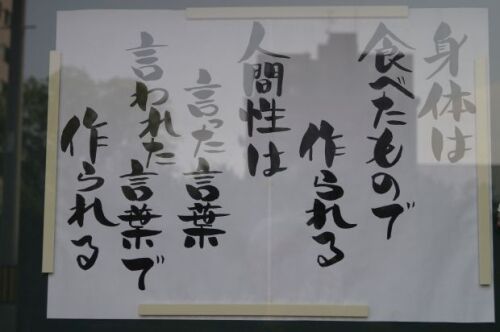 身体は
食べたもので
作られる
人間性は
言った言葉
言われた言葉で
作られる